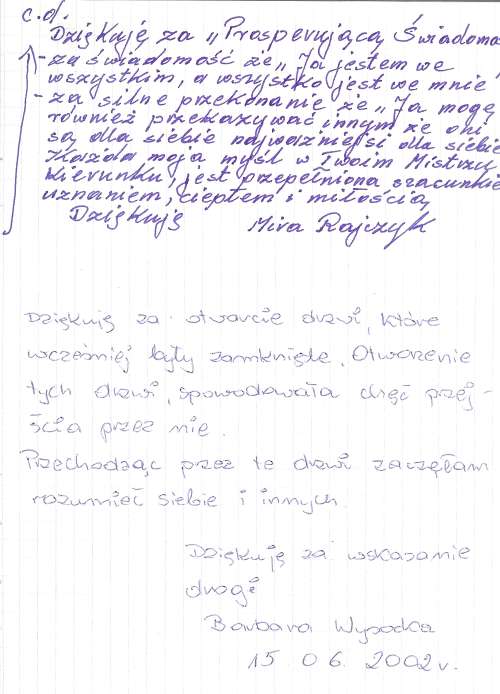 c.d.
Dziękuję za „Prosperującą Świadomo
- za świadomość że „Ja jestem we
wszystkim, a wszystko jest we mnie"
- za silne przekonanie że „Ja mogę
również przekazywać innym że oni
są dla siebie najważniejsi dla siebie
Każda moja myśl w Twoim Mistrzu
kierunku, jest przepełniona szacunkie
uznaniem, ciepłem i miłością
Dziękuję Mira Rajczyk
Dziękuję za otwarcie drzwi, które
wcześniej były zamknięte. Otworzenie
tych drzwi, spowodowała chęć przej-
ścia przez nie.
Przechodząc przez te drzwi zaczęłam
rozumieć siebie i innych.
Dziękuję za wskazanie
drogi
Barbara Wysocka
15 06. 2002 r.